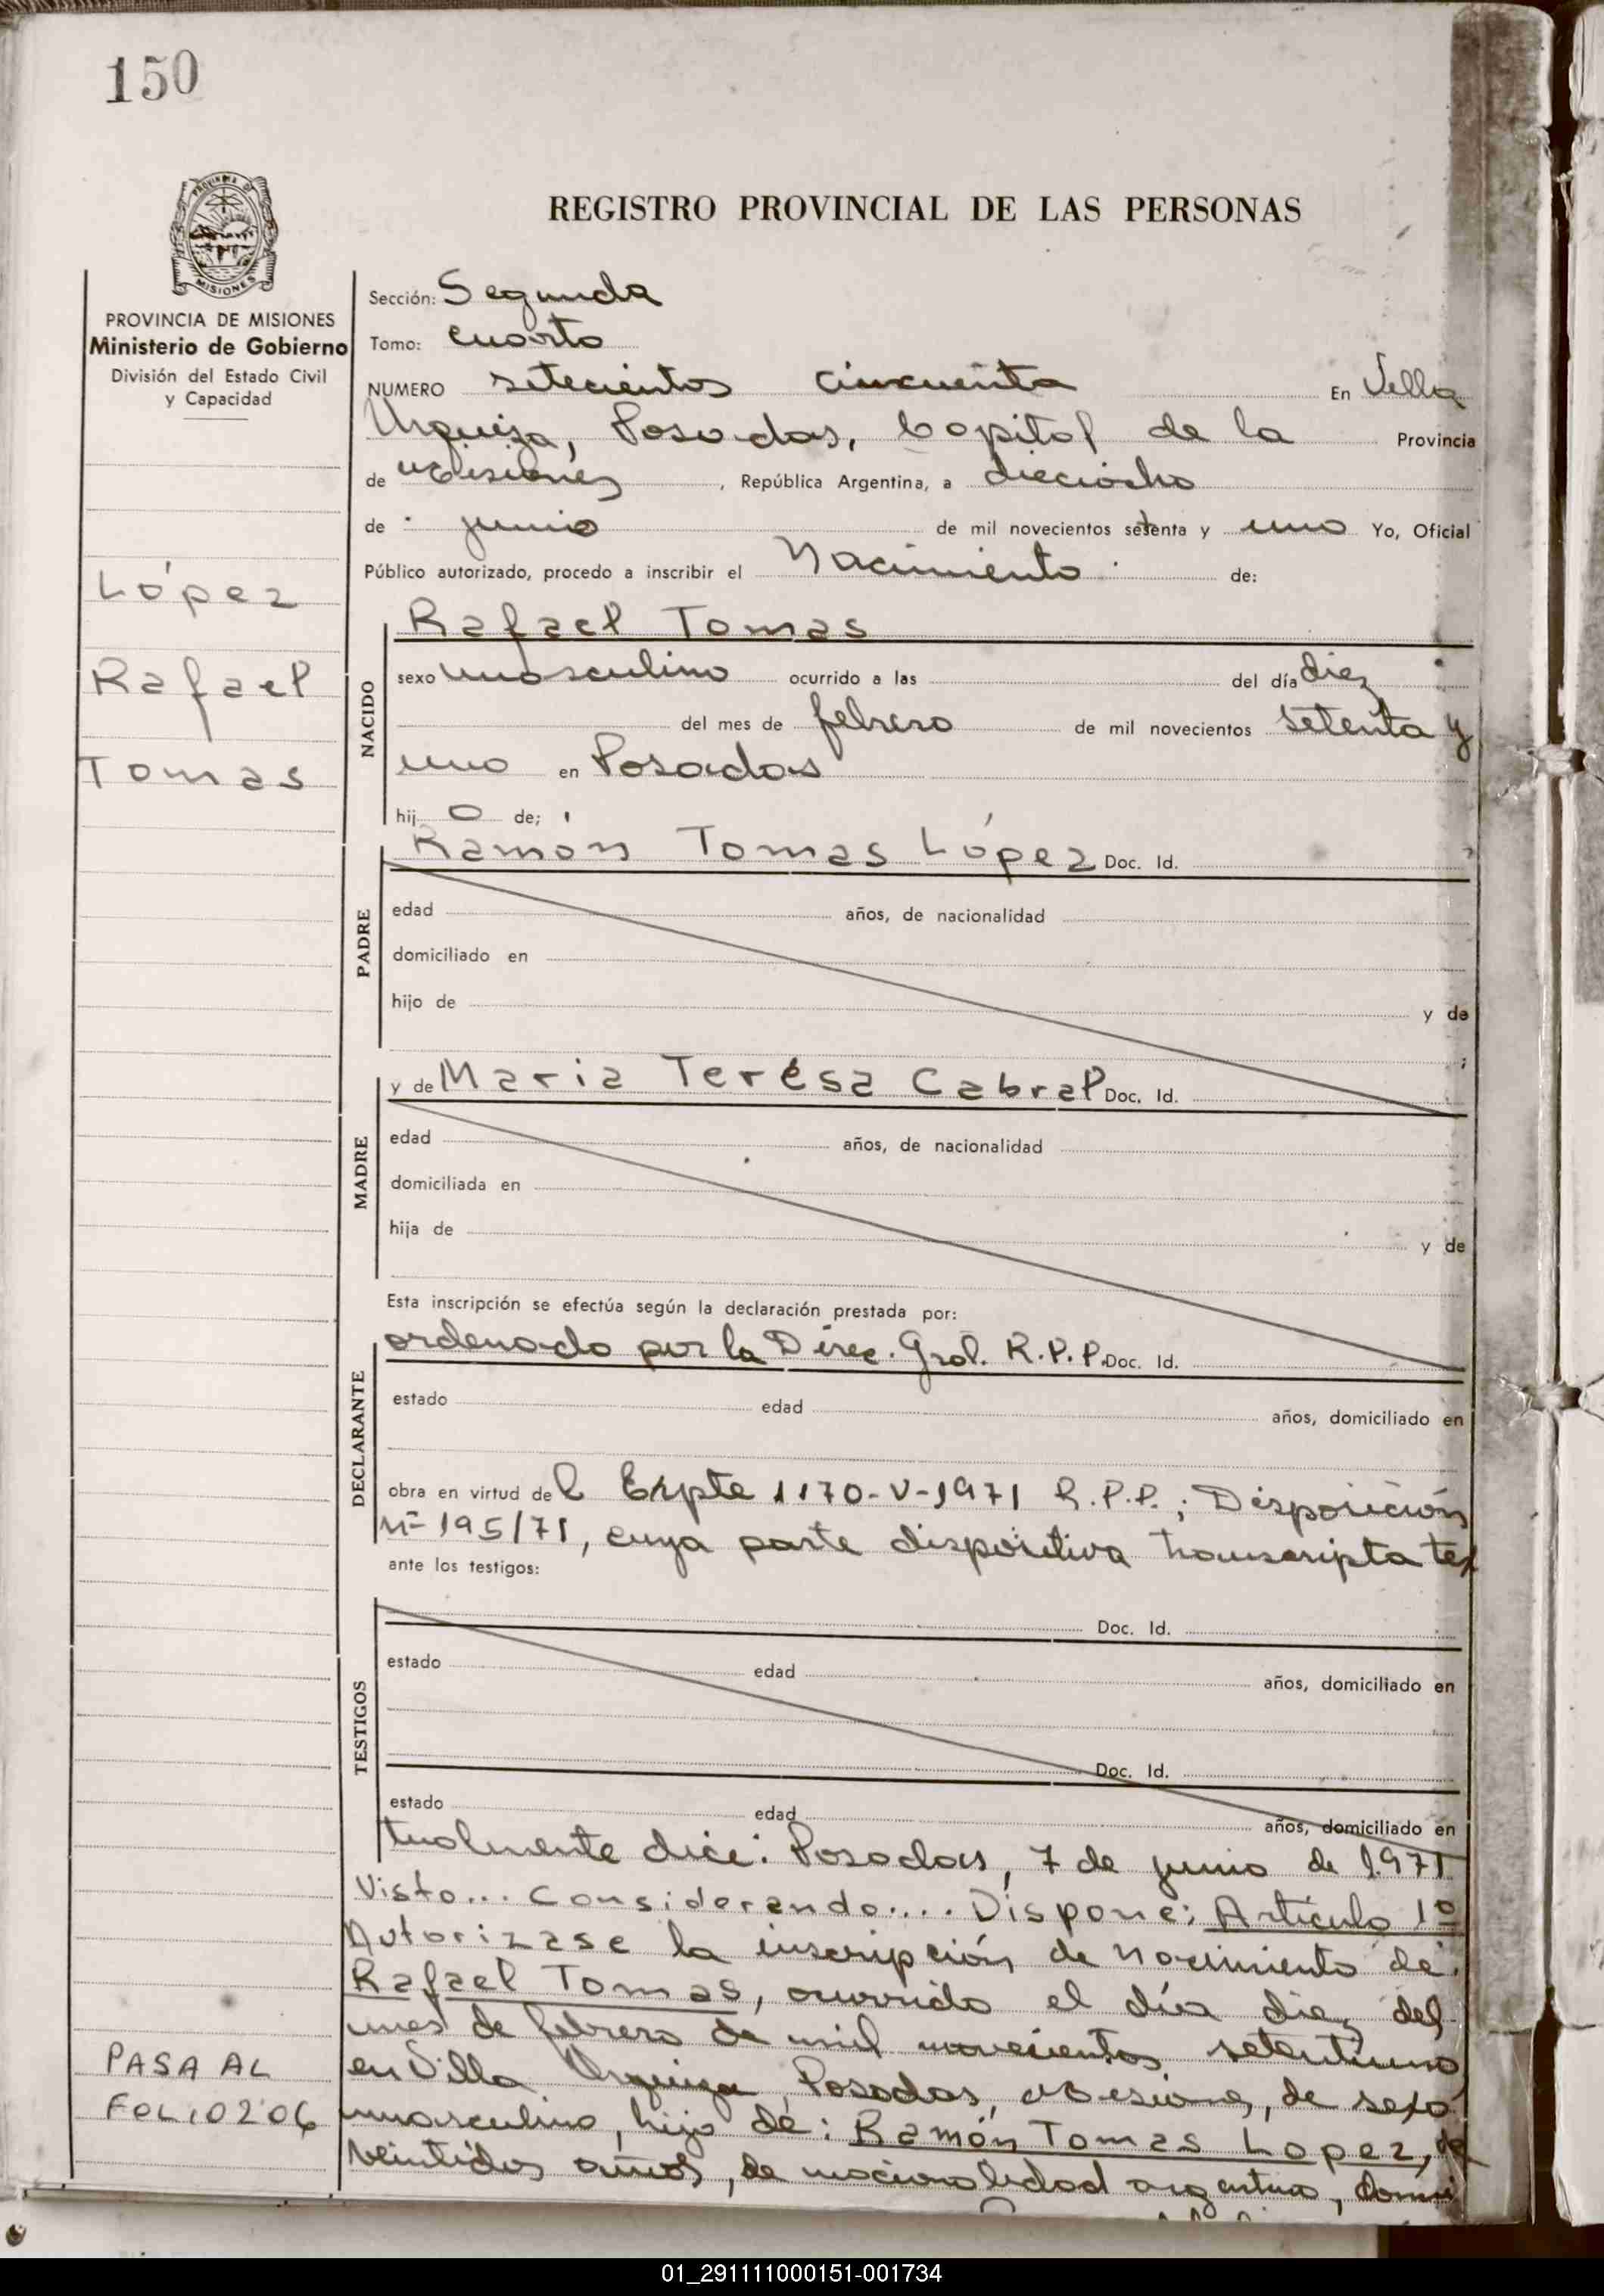 150
PROVINCIA DE
MISIONES
REGISTRO PROVINCIAL DE LAS PERSONAS
PROVINCIA DE MISIONES
Ministerio de Gobierno
División del Estado Civil
y Capacidad
Sección: Segunda
Tomo: cuarto
NUMERO setecientos cincuenta En Villa
Urquiza, Posadas, Capital de la Provincia
de Misiones, República Argentina, a dieciocho
de junio de mil novecientos setenta y uno Yo, Oficial
Público autorizado, procedo a inscribir el Nacimiento de:
López
Rafael
Tomas
NACIDO
Rafael Tomas
sexo masculino ocurrido a las del día diez
del mes de febrero de mil novecientos setenta y
uno en Posadas
hijo de;
PADRE
Ramón Tomas López Doc. Id.
edad años, de nacionalidad
domiciliado en
hijo de y de
;
MADRE
y de Maria Terésa Cabral Doc. Id.
edad años, de nacionalidad
domiciliada en
hija de y de
Esta inscripción se efectúa según la declaración prestada por:
DECLARANTE
ordenado por la Direc. Gral. R.P.P. Doc. Id.
estado edad años, domiciliado en
obra en virtud del Expte 1170-V-1971 R.P.P.; Disposición
Nº 195/71, cuya parte dispositiva transcripta tex
ante los testigos:
TESTIGOS
Doc. Id.
estado edad años, domiciliado en
Doc. Id.
estado edad años, domiciliado en
tualmente dice: Posadas, 7 de junio de 1.971
Visto... Considerando.... Dispone: Artículo 1º
Autorizase la inscripción de nacimiento de:
Rafael Tomas, ocurrido el día diez del
mes de febrero de mil novecientos setentiuno
en Villa Urquiza, Posadas, Misiones, de sexo
masculino, hijo de: Ramón Tomas Lopez, de
veintidos años, de nacionalidad argentina, domi
PASA AL
FOLIO 206
01_291111000151-001734